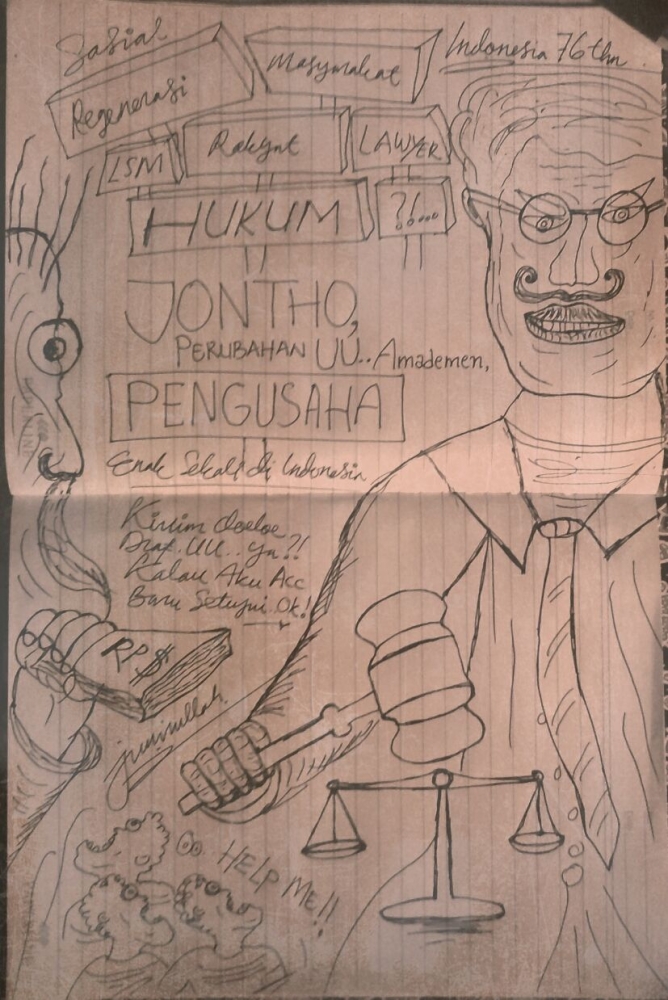 Sosial
Regenerasi
Masyarakat
Indonesia 76 thn
LSM
Rakyat
LAWYER
HUKUM
?!....
JONTHO,
PERUBAHAN UU.. Amademen,
PENGUSAHA
Enak Sekali di Indonesia
Kirim doeloe
Draf. UU.. ya?!
Kalau Aku Acc
Baru Setujui. Ok!
RP $
HELP ME!!